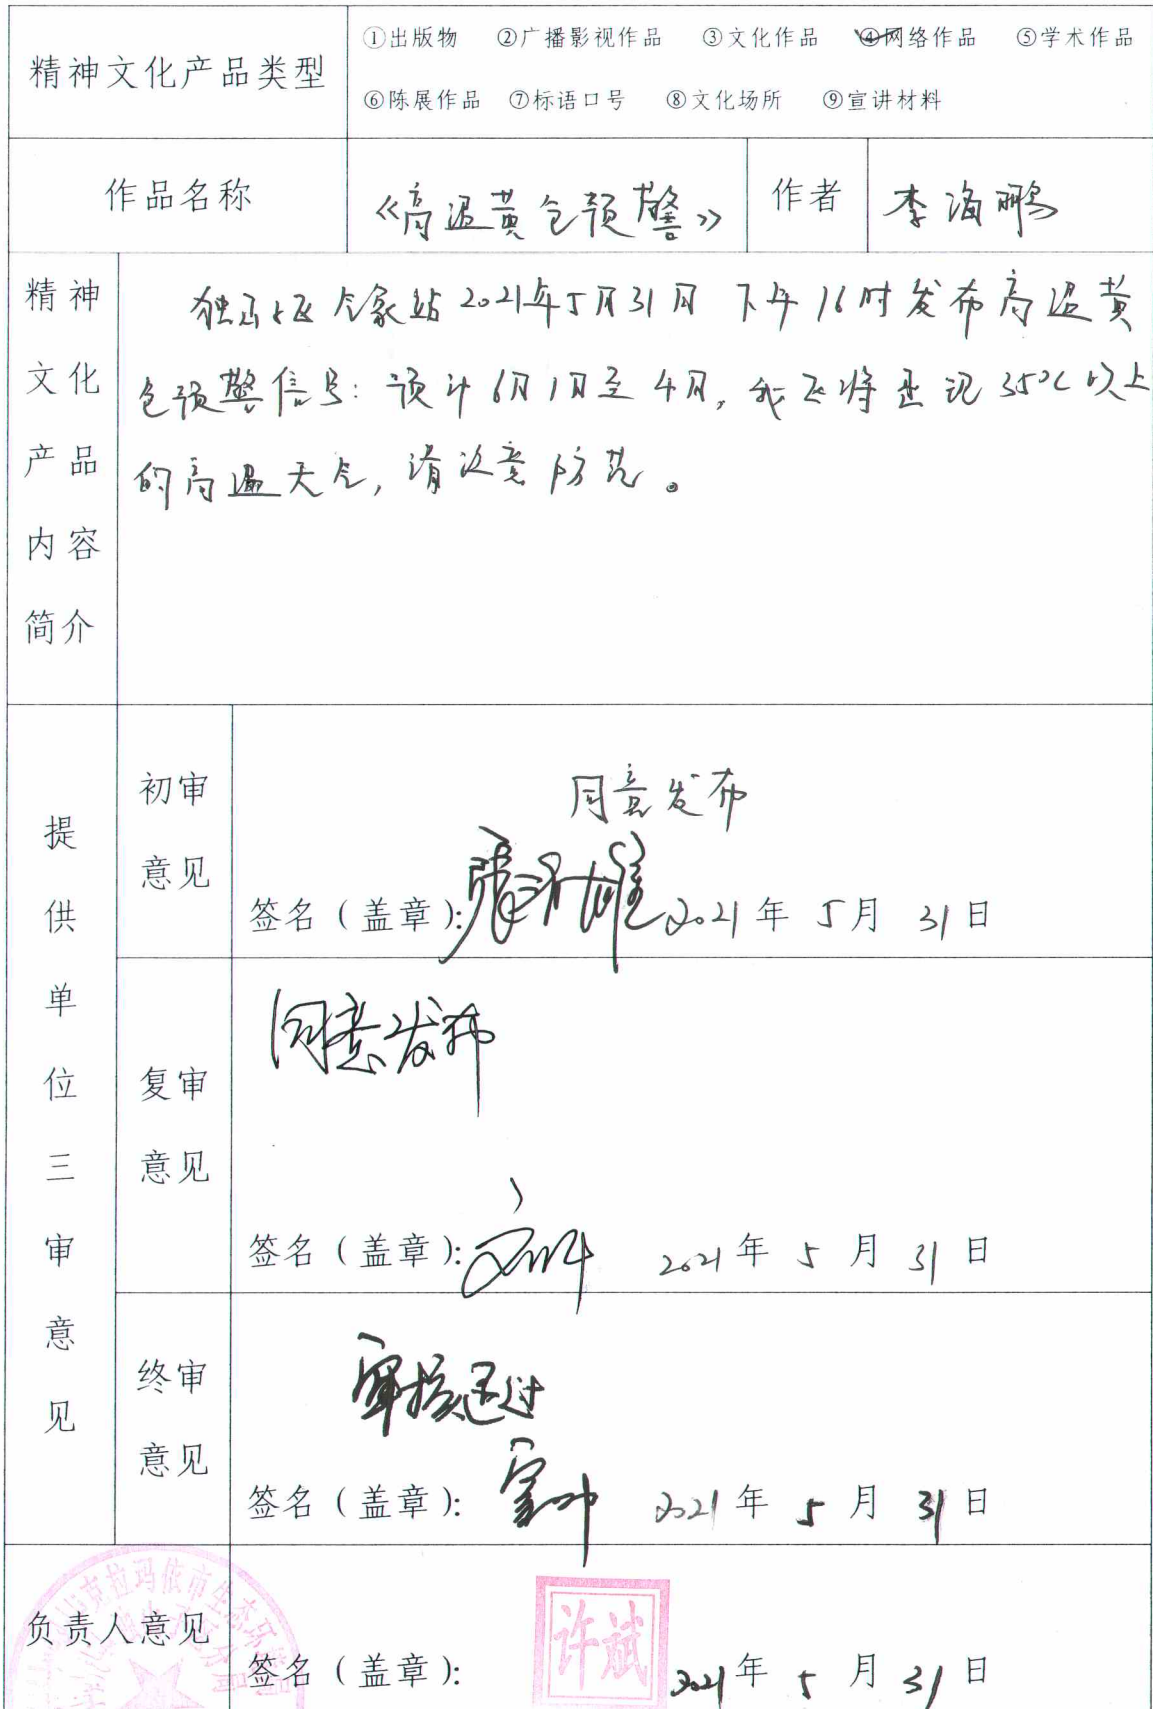 精神文化产品类型
①出版物 ②广播影视作品 ③文化作品 ④网络作品 ⑤学术作品
⑥陈展作品 ⑦标语口号 ⑧文化场所 ⑨宣讲材料
作品名称 《高温黄色预警》 作者 李海鹏
精神文化产品内容简介
独山子区气象站2021年5月31日下午16时发布高温黄
色预警信号:预计6月1日至4日,我区将出现35℃以上
的高温天气,请注意防范。
提供单位三审意见
初审意见
同意发布
签名(盖章): 2021年5月31日
复审意见
同意发布
签名(盖章): 2021年5月31日
终审意见
审核通过
签名(盖章): 2021年5月31日
负责人意见
签名(盖章): 许斌 2021年5月31日
克拉玛依市生态环